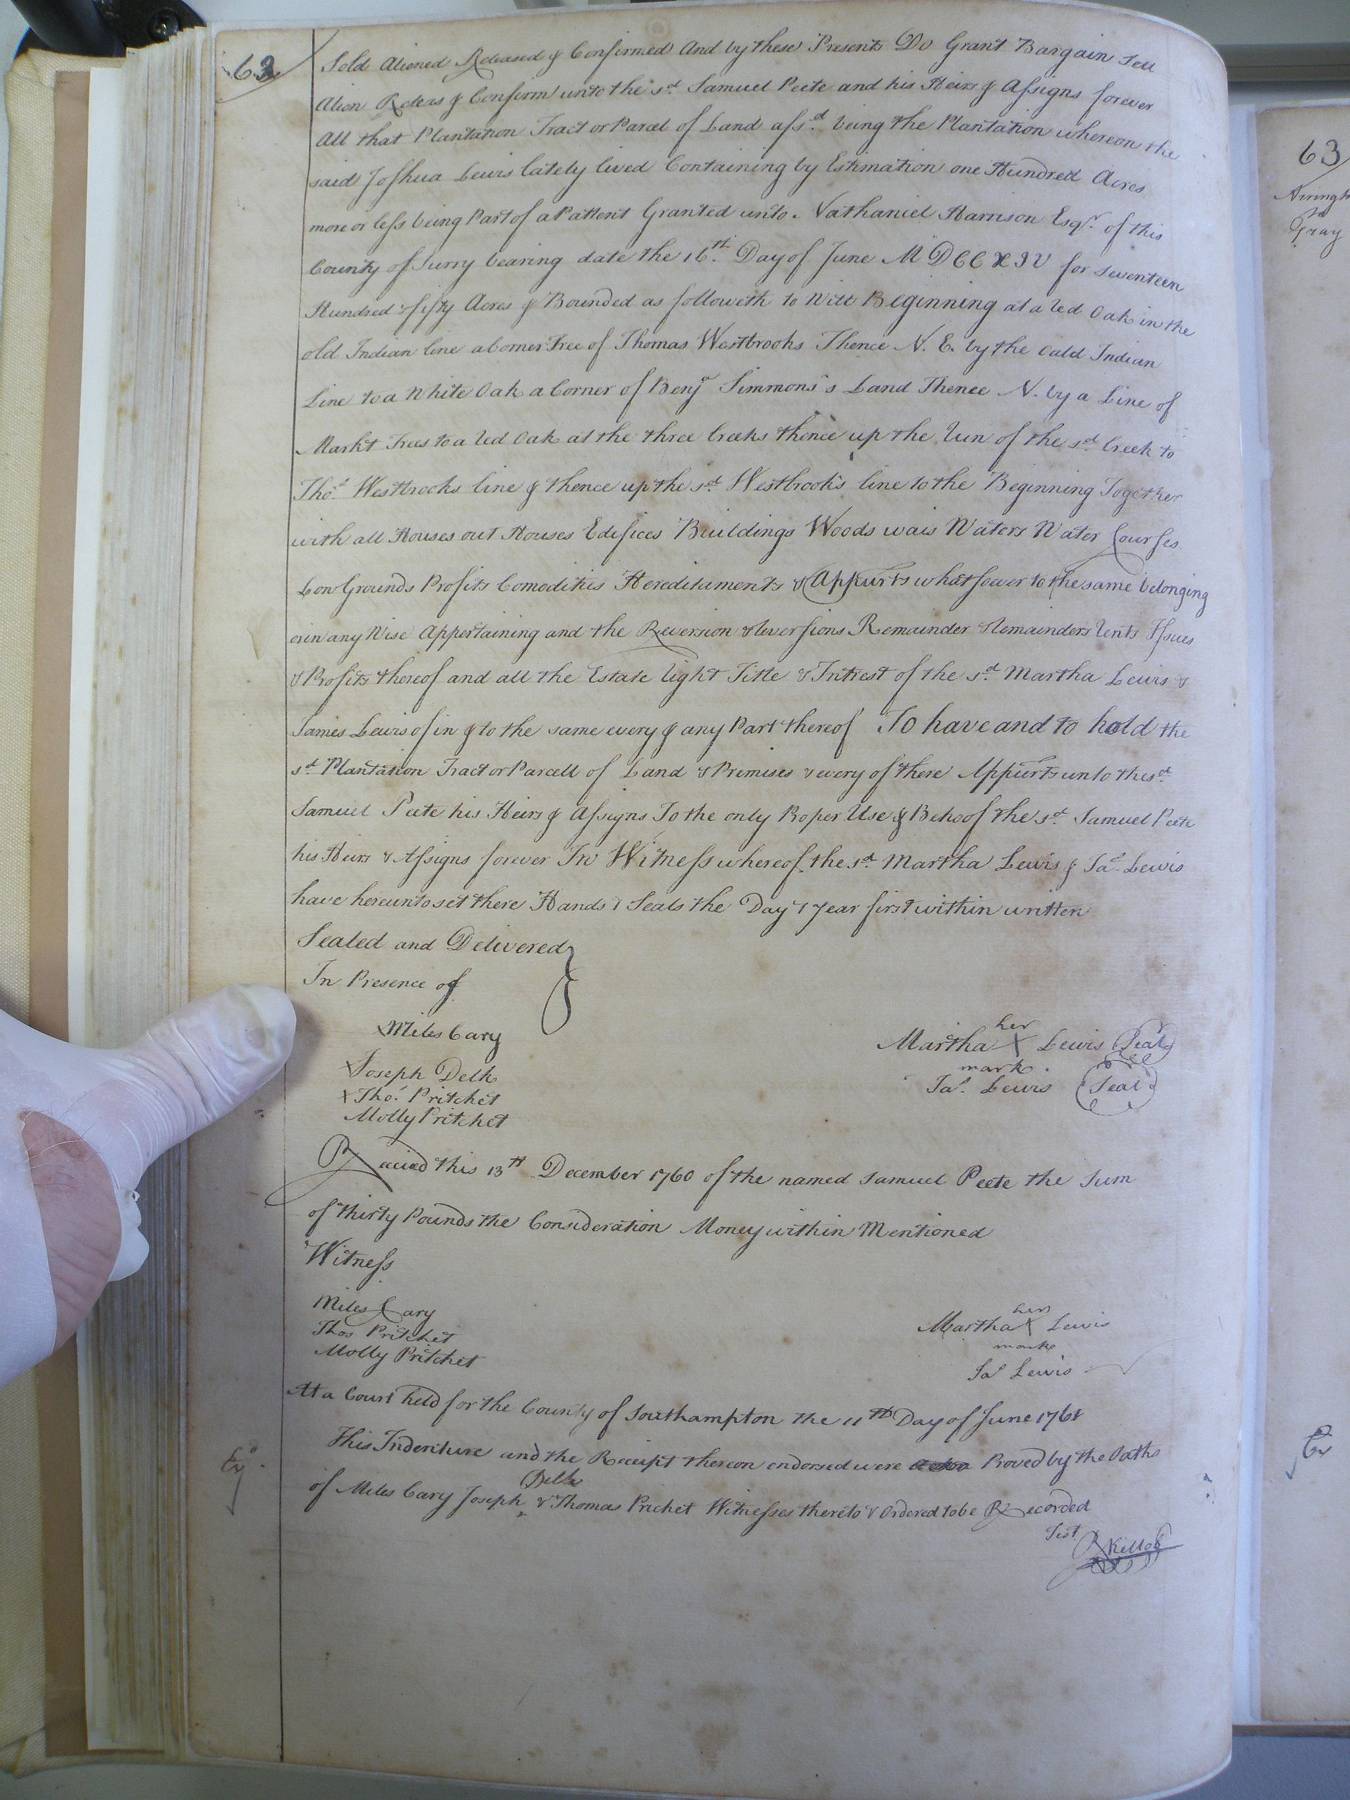 62
Sold Aliened Released & Confirmed And by these Presents Do Grant Bargain Sell
Alien Releas & Confirm unto the sd. Samuel Peete and his Heirs & Assigns forever
All that Plantation Tract or Parcel of Land afsd. being the Plantation whereon the
said Joshua Lewis lately lived Containing by Estimation one Hundred Acres
more or less being Part of a Pattent Granted unto Nathaniel Harrison Esqr. of this
County of Surry bearing date the 16th. Day of June MDCCXIV for seventeen
Hundred & fifty Acres & Bounded as followeth to Witt Beginning at a Red Oak in the
old Indian line a Corner Tree of Thomas Westbrooks Thence N. E. by the Ould Indian
Line to a White Oak a Corner of Benja Simmons's Land Thence N. by a Line of
Markt Trees to a Red Oak at the three Creeks thence up the Run of the sd. Creek to
Thos. Westbrooks line & thence up the sd. Westbrook's line to the Beginning Together
with all Houses out Houses Edifices Buildings Woods wais Waters Water Courses
Low Grounds Profits Comodities Hereditaments & Appurts whatsoever to the same belonging
or in any Wise Appertaining and the Reversion & Reversions Remainder & Remainders Rents Issues
& Profits thereof and all the Estate Right Title & Intrest of the sd. Martha Lewis &
James Lewis of in & to the same every & any Part thereof To have and to hold the
sd. Plantation Tract or Parcell of Land & Premises & every of there Appurts unto the sd.
Samuel Peete his Heirs & Assigns To the only Proper Use & Behoof of the sd. Samuel Peete
his Heirs & Assigns forever In Witness whereof the sd. Martha Lewis & Jas. Lewis
have hereunto set there Hands & Seals the Day & Year first within written
Sealed and Delivered
In Presence of
Miles Cary
Joseph Delk
Thos. Pritchet
Molly Pritchet
her
Martha X Lewis Seal
mark
Jas. Lewis Seal
Received this 13th December 1760 of the named Samuel Peete the Sum
of thirty Pounds the Consideration Money within Mentioned
Witness
Miles Cary
Thos Pritchet
Molly Pritchet
her
Martha X Lewis
mark
Jas Lewis
At a Court held for the County of Southampton the 11th Day of June 1761
This Indenture and the Receipt thereon endorsed were Proved by the Oaths
of Miles Cary Joseph Delk & Thomas Prichet Witnesses thereto & Ordered to be Recorded
Test
R Kello
Ex
63
Gray
Ex